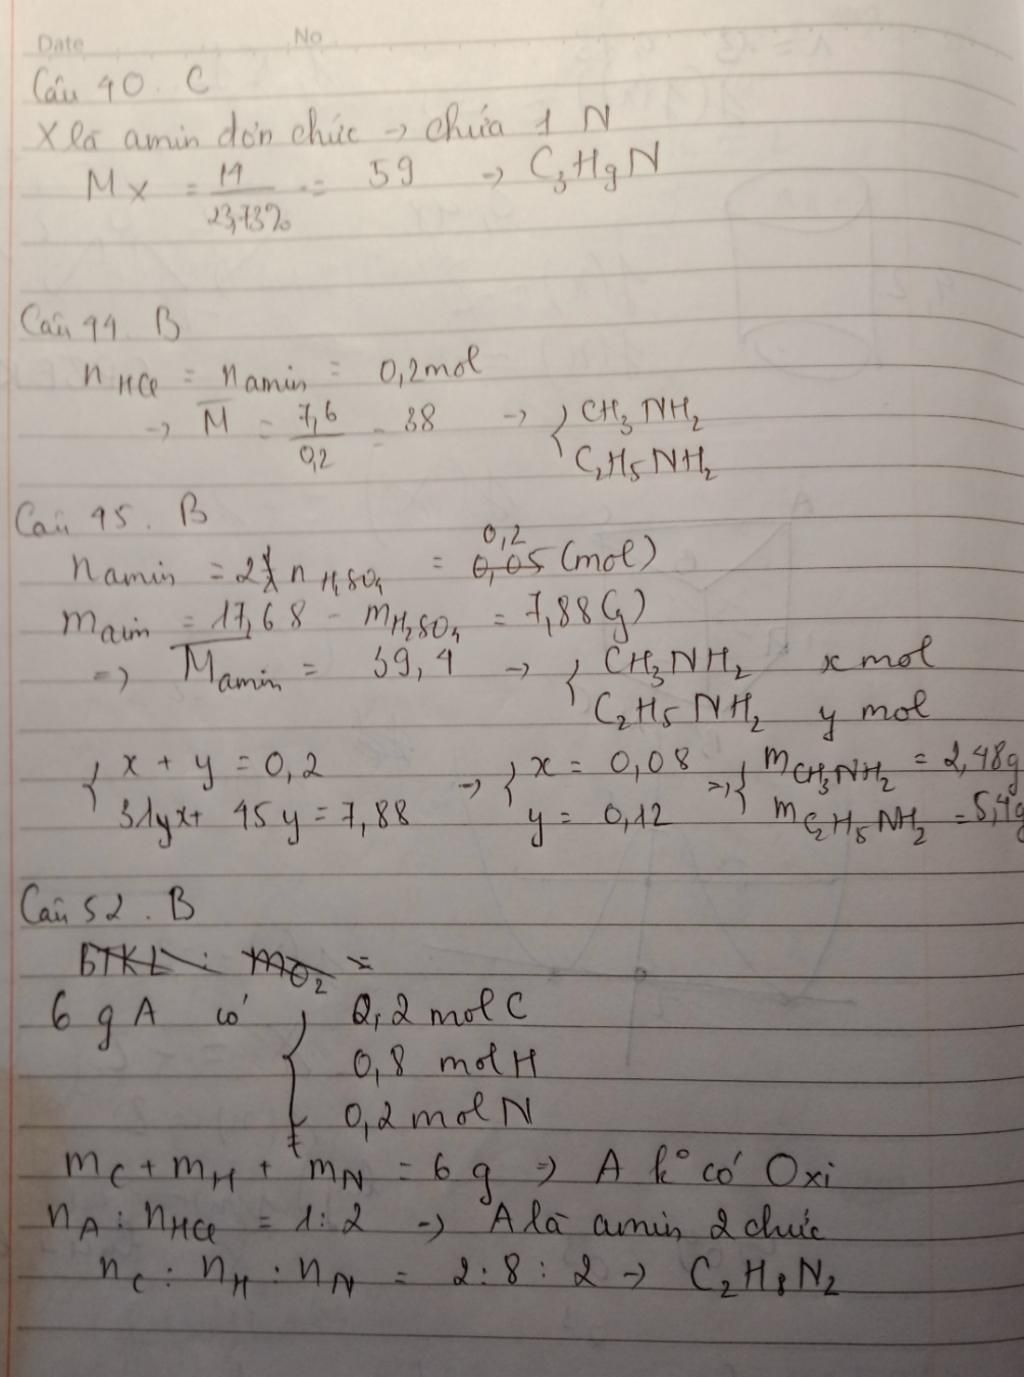 Date No
Câu 40. C
X là amin đơn chức → chứa 1 N
Mx = 14/23,73% = 59 → C₃H₉N
Câu 44. B
nHCl = namin = 0,2mol
→ M̅ = 7,6/0,2 = 38 → { CH₃NH₂
C₂H₅NH₂
Câu 45. B
0,2
namin = 2 nH₂SO₄ = 0,05 (mol)
maim = 17,68 - mH₂SO₄ = 7,88G)
=> M̅amin = 39,4 → { CH₃NH₂ x mol
C₂H₅NH₂ y mol
{ x + y = 0,2 → { x = 0,08 => { mCH₃NH₂ = 2,48g
31yx+ 45y = 7,88 y = 0,12 mC₂H₅NH₂ = 5,4g
Câu 52. B
BTKL: mO₂ =
6 g A có { 0,2 mol C
0,8 mol H
0,2 mol N
mC + mH + mN = 6 g => A k° có Oxi
nA : nHCl = 1:2 → A là amin 2 chức
nC : nH : nN = 2:8:2 → C₂H₈N₂